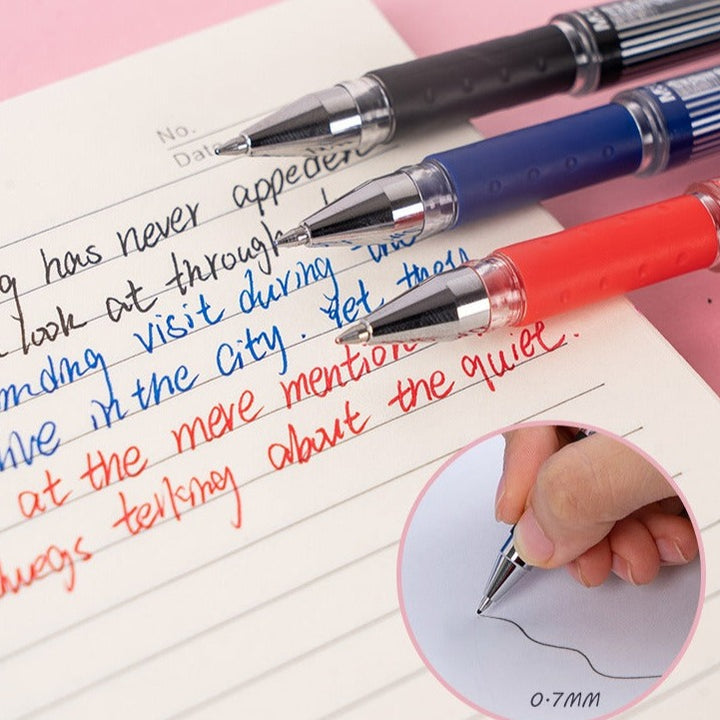 No.
Date
g has never appeder
look at through
nding visit during the
ive in the City. Yet they
at the mere mention
terlking about the quiet.
0.7MM